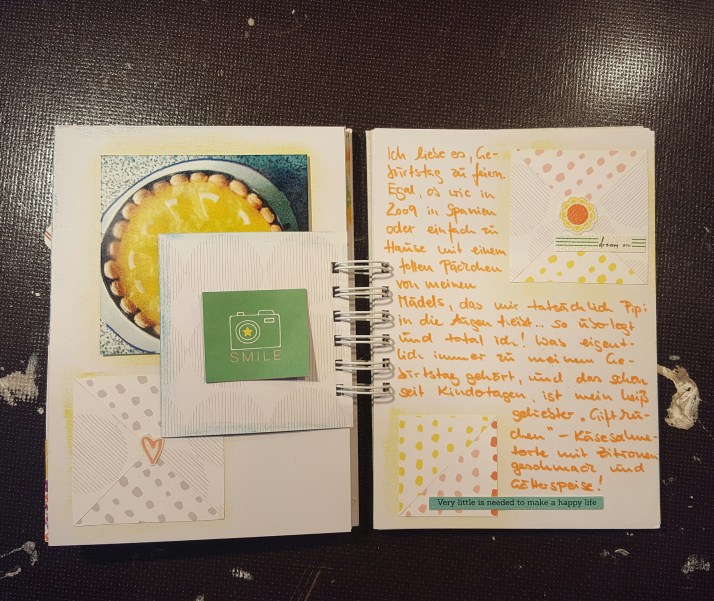 SMILE
Ich liebe es, Ge-
burtstag zu feiern
Egal, ob wie in
2009 in Spanien
oder einfach zu
Hause mit einem
tollen Päckchen
von meinen
Mädels, das mir tatsächlich Pipi
in die Augen treibt... so überlegt
und total ich! Was eigent-
lich immer zu meinem Ge-
burtstag gehört, und das schon
seit Kindertagen, ist mein heiß
geliebter „Giftku-
chen" - Käsesahne-
torte mit Zitronen
geschmack und
Götterspeise!
dream on
Very little is needed to make a happy life